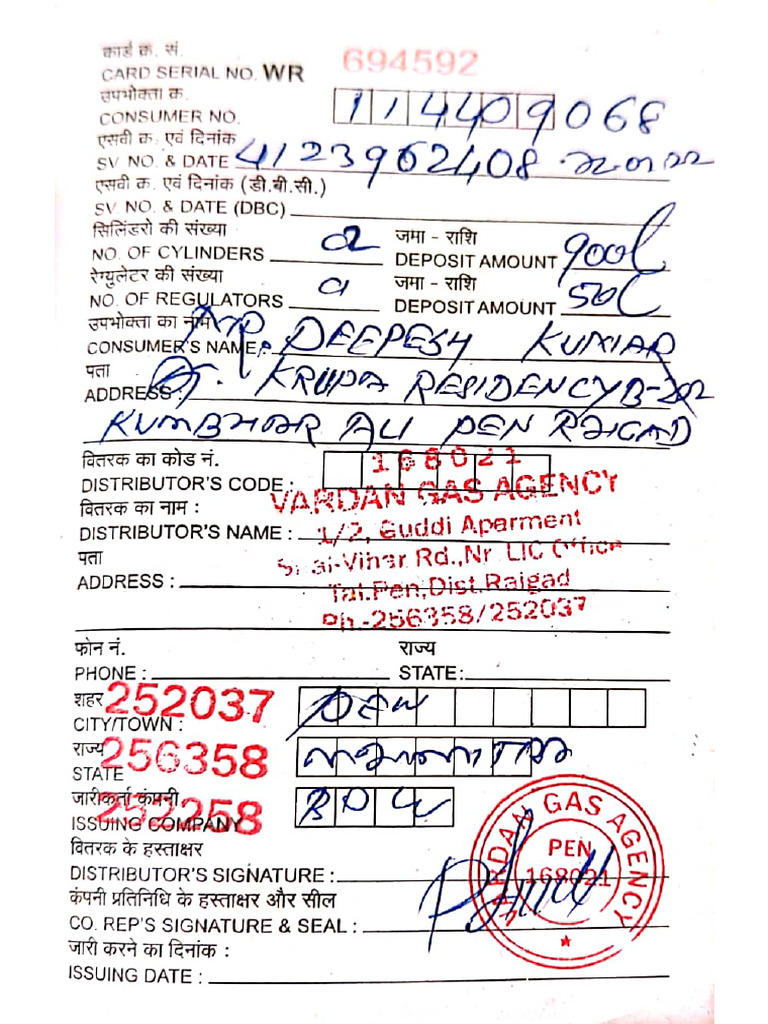 कार्ड क्र. सं.
CARD SERIAL NO. WR 694592
उपभोक्ता क्र.
CONSUMER NO. 114409068
एसवी क्र. एवं दिनांक
SV NO. & DATE 4123962408
एसवी क्र. एवं दिनांक (डी.बी.सी.)
SV NO. & DATE (DBC)
सिलिंडरो की संख्या जमा - राशि
NO. OF CYLINDERS 2 DEPOSIT AMOUNT 900/
रेग्युलेटर की संख्या जमा - राशि
NO. OF REGULATORS DEPOSIT AMOUNT 50/
उपभोक्ता का नाम
CONSUMER'S NAME: DEEPESH KUMAR
पता
ADDRESS: At. KRUPA RESIDENCY B-202
KUMBHAR ALI PEN RAIGAD
वितरक का कोड नं.
DISTRIBUTOR'S CODE : 168021
वितरक का नाम : VARDAN GAS AGENCY
DISTRIBUTOR'S NAME : 1/2, Guddi Aparment
पता Vihar Rd.,Nr. LIC Office
ADDRESS : Tal.Pen,Dist.Raigad
Ph.-256358/252037
फोन नं. राज्य
PHONE : STATE:
शहर 252037
CITY/TOWN : PEN
राज्य 256358
STATE
जारीकर्ता कंपनी 252258
ISSUING COMPANY
वितरक के हस्ताक्षर
DISTRIBUTOR'S SIGNATURE :
कंपनी प्रतिनिधि के हस्ताक्षर और सील
CO. REP'S SIGNATURE & SEAL :
VARDAN GAS AGENCY
PEN
168021
जारी करने का दिनांक :
ISSUING DATE :